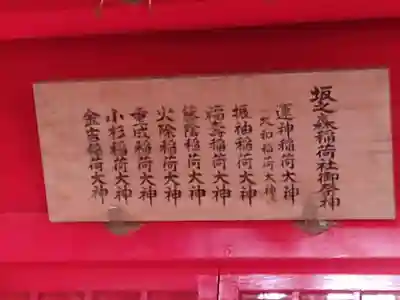 坂之森稲荷社御祭神
運神稲荷大神
大和稲荷大神
振袖稲荷大神
福寿稲荷大神
藤隂稲荷大神
火除稲荷大神
重成稲荷大神
小杉稲荷大神
金吉稲荷大神